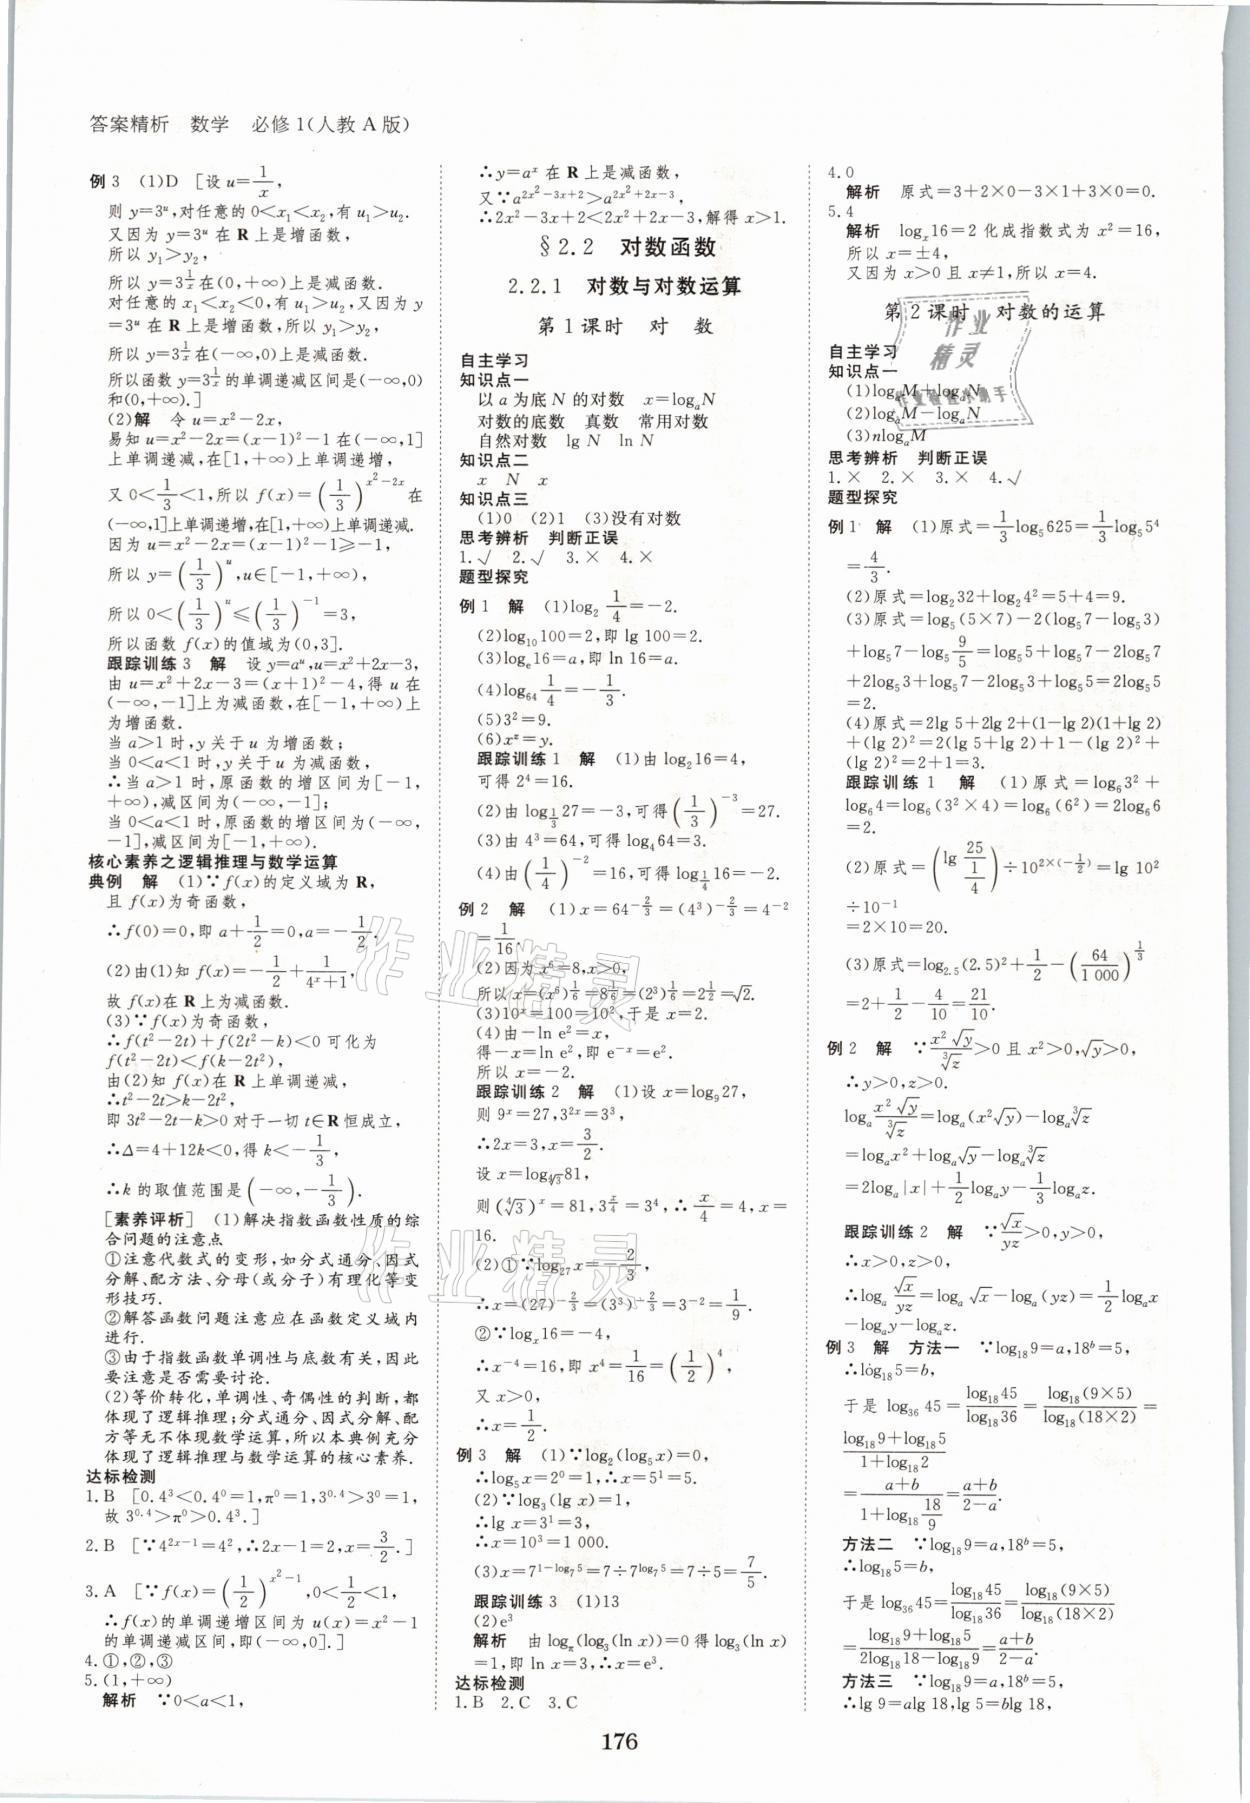 答案精析 数学 必修1(人教A版)
例3 (1)D [设u=1/x,
则y=3ᵘ,对任意的0<x₁<x₂,有u₁>u₂.
又因为y=3ᵘ在R上是增函数,
所以y₁>y₂,
所以y=3^(1/x)在(0,+∞)上是减函数.
对任意的x₁<x₂<0,有u₁>u₂,又因为y
=3ᵘ在R上是增函数,所以y₁>y₂,
所以y=3^(1/x)在(-∞,0)上是减函数.
所以函数y=3^(1/x)的单调递减区间是(-∞,0)
和(0,+∞).]
(2)解 令u=x²-2x,
易知u=x²-2x=(x-1)²-1在(-∞,1]
上单调递减,在[1,+∞)上单调递增,
又0<1/3<1,所以f(x)=(1/3)^(x²-2x)在
(-∞,1]上单调递增,在[1,+∞)上单调递减.
因为u=x²-2x=(x-1)²-1≥-1,
所以y=(1/3)ᵘ,u∈[-1,+∞),
所以0<(1/3)ᵘ≤(1/3)⁻¹=3,
所以函数f(x)的值域为(0,3].
跟踪训练3 解 设y=aᵘ,u=x²+2x-3,
由u=x²+2x-3=(x+1)²-4,得u在
(-∞,-1]上为减函数,在[-1,+∞)上
为增函数.
当a>1时,y关于u为增函数;
当0<a<1时,y关于u为减函数,
∴当a>1时,原函数的增区间为[-1,
+∞),减区间为(-∞,-1];
当0<a<1时,原函数的增区间为(-∞,
-1],减区间为[-1,+∞).
核心素养之逻辑推理与数学运算
典例 解 (1)∵f(x)的定义域为R,
且f(x)为奇函数,
∴f(0)=0,即a+1/2=0,a=-1/2.
(2)由(1)知f(x)=-1/2+1/(4ˣ+1),
故f(x)在R上为减函数.
(3)∵f(x)为奇函数,
∴f(t²-2t)+f(2t²-k)<0可化为
f(t²-2t)<f(k-2t²),
由(2)知f(x)在R上单调递减,
∴t²-2t>k-2t²,
即3t²-2t-k>0对于一切t∈R恒成立,
∴Δ=4+12k<0,得k<-1/3,
∴k的取值范围是(-∞,-1/3).
[素养评析] (1)解决指数函数性质的综
合问题的注意点
①注意代数式的变形,如分式通分、因式
分解、配方法、分母(或分子)有理化等变
形技巧.
②解答函数问题注意应在函数定义域内
进行.
③由于指数函数单调性与底数有关,因此
要注意是否需要讨论.
(2)等价转化,单调性、奇偶性的判断,都
体现了逻辑推理;分式通分、因式分解、配
方等无不体现数学运算,所以本典例充分
体现了逻辑推理与数学运算的核心素养.
达标检测
1.B [0.4³<0.4⁰=1,π⁰=1,3^0.4>3⁰=1,
故3^0.4>π⁰>0.4³.]
2.B [∵4^(2x-1)=4²,∴2x-1=2,x=3/2.]
3.A [∵f(x)=(1/2)^(x²-1),0<1/2<1,
∴f(x)的单调递增区间为u(x)=x²-1
的单调递减区间,即(-∞,0].]
4.①,②,③
5.(1,+∞)
解析 ∵0<a<1,
∴y=aˣ在R上是减函数,
又∵a^(2x²-3x+2)>a^(2x²+2x-3),
∴2x²-3x+2<2x²+2x-3,解得x>1.
§2.2 对数函数
2.2.1 对数与对数运算
第1课时 对 数
自主学习
知识点一
以a为底N的对数 x=logₐN
对数的底数 真数 常用对数
自然对数 lg N ln N
知识点二
x N x
知识点三
(1)0 (2)1 (3)没有对数
思考辨析 判断正误
1.√ 2.√ 3.× 4.×
题型探究
例1 解 (1)log₂ 1/4=-2.
(2)log₁₀100=2,即lg 100=2.
(3)logₑ16=a,即ln 16=a.
(4)log₆₄ 1/4=-1/3.
(5)3²=9.
(6)xᶻ=y.
跟踪训练1 解 (1)由log₂16=4,
可得2⁴=16.
(2)由log_(1/3)27=-3,可得(1/3)⁻³=27.
(3)由4³=64,可得log₄64=3.
(4)由(1/4)⁻²=16,可得log_(1/4)16=-2.
例2 解 (1)x=64^(-2/3)=(4³)^(-2/3)=4⁻²
=1/16.
(2)因为x⁶=8,x>0,
所以x=(x⁶)^(1/6)=8^(1/6)=(2³)^(1/6)=2^(1/2)=√2.
(3)10ˣ=100=10²,于是x=2.
(4)由-ln e²=x,
得-x=ln e²,即e⁻ˣ=e².
所以x=-2.
跟踪训练2 解 (1)设x=log₉27,
则9ˣ=27,3²ˣ=3³,
∴2x=3,x=3/2.
设x=log_(⁴√3)81,
则(⁴√3)ˣ=81,3^(x/4)=3⁴,∴x/4=4,x=
16.
(2)①∵log₂₇x=-2/3,
∴x=(27)^(-2/3)=(3³)^(-2/3)=3⁻²=1/9.
②∵logₓ16=-4,
∴x⁻⁴=16,即x⁴=1/16=(1/2)⁴,
又x>0,
∴x=1/2.
例3 解 (1)∵log₂(log₅x)=0,
∴log₅x=2⁰=1,∴x=5¹=5.
(2)∵log₃(lg x)=1,
∴lg x=3¹=3,
∴x=10³=1 000.
(3)x=7^(1-log₇5)=7÷7^(log₇5)=7÷5=7/5.
跟踪训练3 (1)13
(2)e³
解析 由log_π(log₃(ln x))=0得log₃(ln x)
=1,即ln x=3,∴x=e³.
达标检测
1.B 2.C 3.C
4.0
解析 原式=3+2×0-3×1+3×0=0.
5.4
解析 logₓ16=2化成指数式为x²=16,
所以x=±4,
又因为x>0且x≠1,所以x=4.
第2课时 对数的运算
自主学习
知识点一
(1)logₐM+logₐN
(2)logₐM-logₐN
(3)nlogₐM
思考辨析 判断正误
1.× 2.× 3.× 4.√
题型探究
例1 解 (1)原式=1/3 log₅625=1/3 log₅5⁴
=4/3.
(2)原式=log₂32+log₂4²=5+4=9.
(3)原式=log₅(5×7)-2(log₅7-log₅3)
+log₅7-log₅ 9/5=log₅5+log₅7-2log₅7
+2log₅3+log₅7-2log₅3+log₅5=2log₅5
=2.
(4)原式=2lg 5+2lg 2+(1-lg 2)(1+lg 2)
+(lg 2)²=2(lg 5+lg 2)+1-(lg 2)²+
(lg 2)²=2+1=3.
跟踪训练1 解 (1)原式=log₆3²+
log₆4=log₆(3²×4)=log₆(6²)=2log₆6
=2.
(2)原式=(lg 25/(1/4))÷10^(2×(-1/2))=lg 10²
÷10⁻¹
=2×10=20.
(3)原式=log₂.₅(2.5)²+1/2-(64/1 000)^(1/3)
=2+1/2-4/10=21/10.
例2 解 ∵x²√y/³√z>0且x²>0,√y>0,
∴y>0,z>0.
logₐ x²√y/³√z=logₐ(x²√y)-logₐ³√z
=logₐx²+logₐ√y-logₐ³√z
=2logₐ|x|+1/2 logₐy-1/3 logₐz.
跟踪训练2 解 ∵√x/yz>0,y>0,
∴x>0,z>0,
∴logₐ √x/yz=logₐ√x-logₐ(yz)=1/2 logₐx
-logₐy-logₐz.
例3 解 方法一 ∵log₁₈9=a,18ᵇ=5,
∴log₁₈5=b,
于是log₃₆45=log₁₈45/log₁₈36=log₁₈(9×5)/log₁₈(18×2)=
(log₁₈9+log₁₈5)/(1+log₁₈2)
=(a+b)/(1+log₁₈ 18/9)=(a+b)/(2-a).
方法二 ∵log₁₈9=a,18ᵇ=5,
∴log₁₈5=b,
于是log₃₆45=log₁₈45/log₁₈36=log₁₈(9×5)/log₁₈(18×2)
=(log₁₈9+log₁₈5)/(2log₁₈18-log₁₈9)=(a+b)/(2-a).
方法三 ∵log₁₈9=a,18ᵇ=5,
∴lg 9=alg 18,lg 5=blg 18,
176
作业精灵
作业精灵
作业
精灵